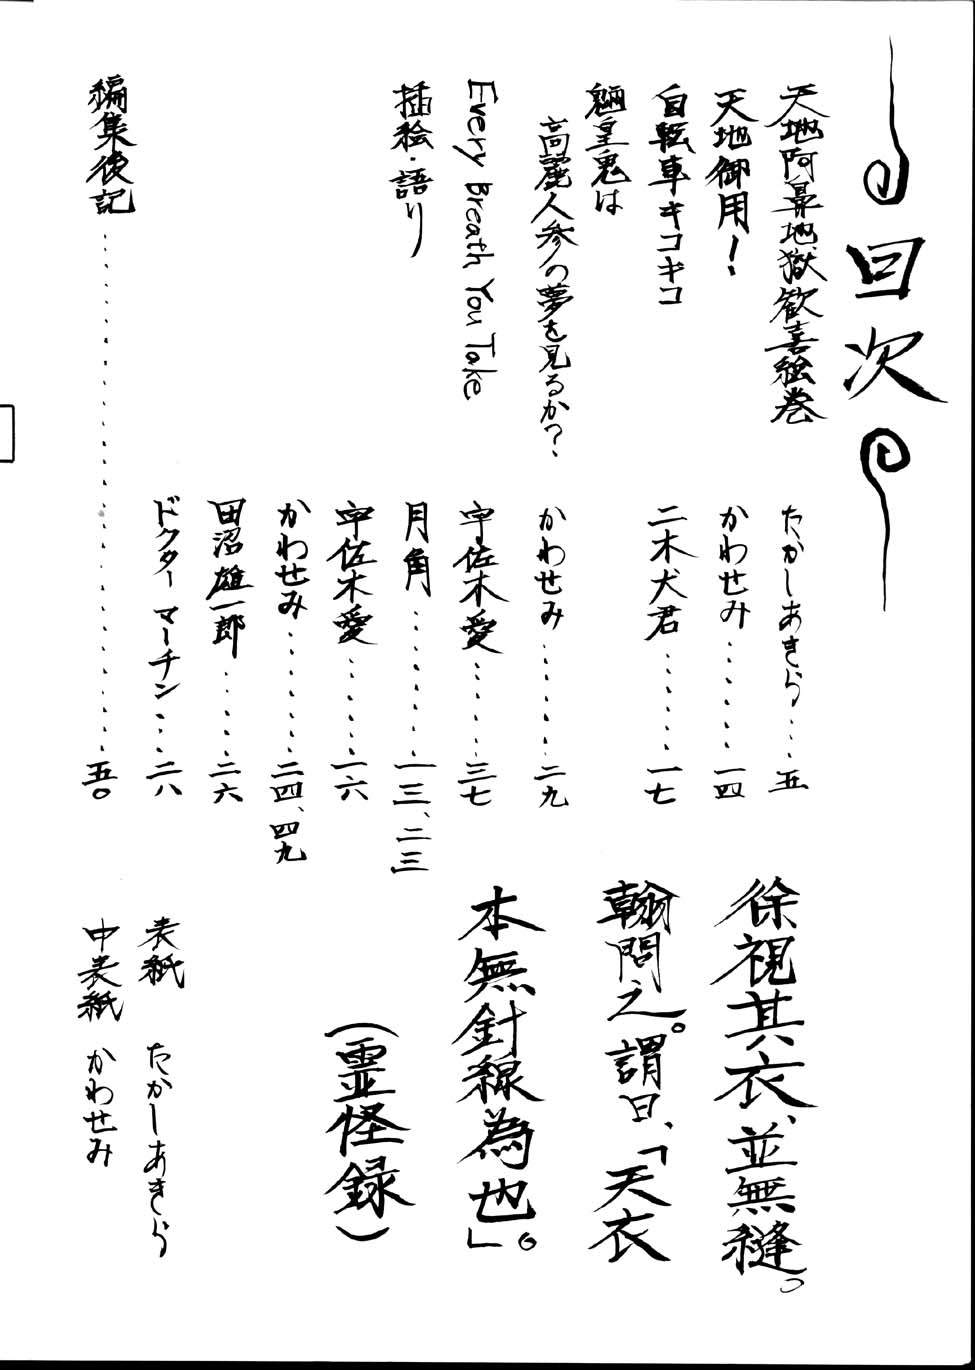 目次
天地阿鼻地獄歓喜絵巻
たかしあきら……五
天地御用!
かわせみ……一四
自転車キコキコ
二木犬君……一七
魎皇鬼は
高麗人参の夢を見るか?
かわせみ……二九
Every Breath You Take
宇佐木愛……三七
挿絵・語り
月角……一三、二三
宇佐木愛……一六
かわせみ……二四、四九
田沼雄一郎……二六
ドクターマーチン……二八
編集後記……五〇
徐視其衣、並無縫。
翰問之。謂曰、「天衣
本無針線為也」。
(霊怪録)
表紙 たかしあきら
中表紙 かわせみ